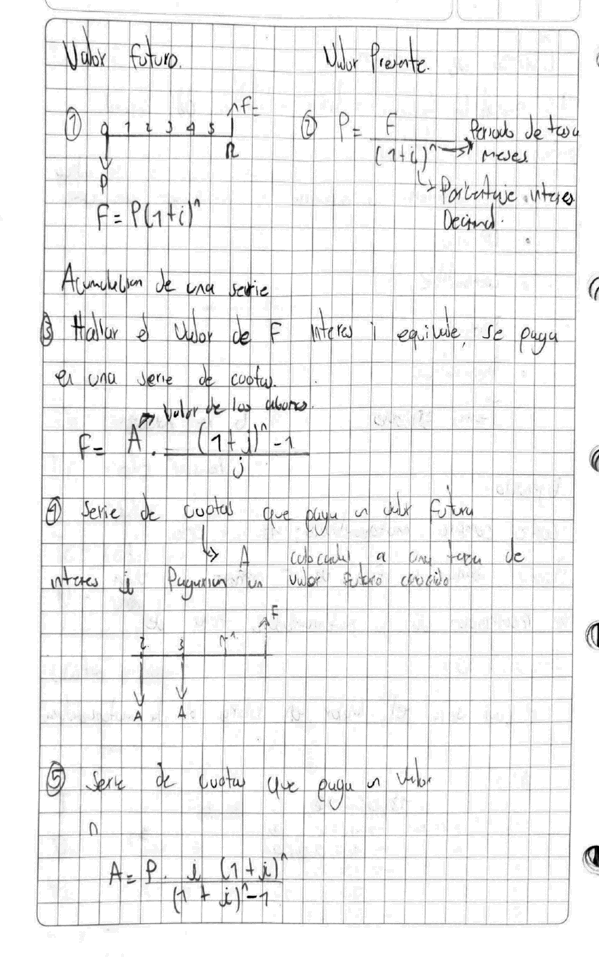 Valor futuro. Valor Presente.
① 0 1 2 3 4 5 n F=
P
F = P(1+i)^n
② P = F / (1+i)^n → Periodo de tasa meses
↳ Porcentaje interes
Decimal.
Acumulacion de una serie
③ Hallar el Valor de F interes i equivale, se paga
en una serie de cuotas.
→ Valor de los abonos.
F = A . (1+i)^n - 1 / i
④ Serie de cuotas que paga un valor futuro
↳ A colocadas a una tasa de
interes i Pagarian un valor futuro conocido
2 3 n F
A A
⑤ Serie de cuotas que paga un valor
n
A = P . i (1+i)^n / (1+i)^n - 1